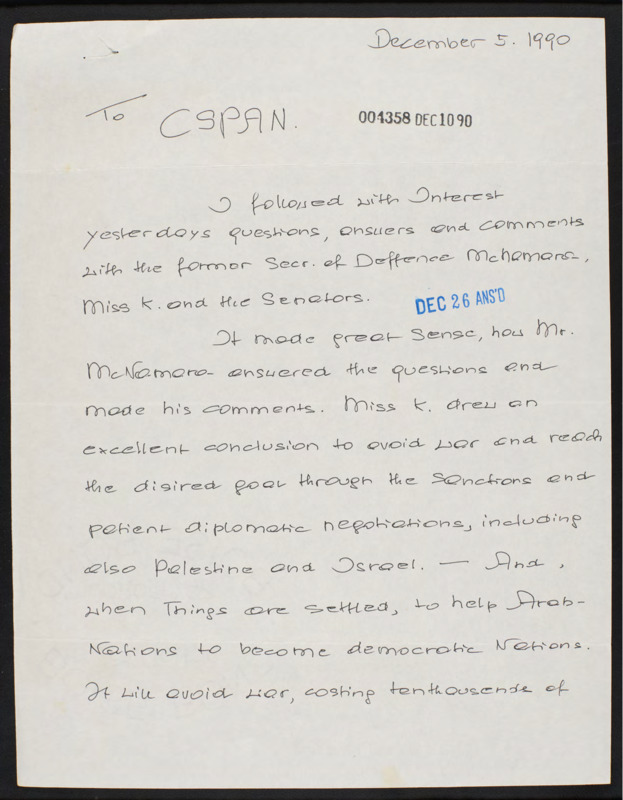 December 5. 1990
To CSPAN.
004358 DEC 10 90
I followed with Interest
yesterdays questions, answers and comments
with the former Secr. of Deffence McNamara,
Miss K. and the Senators.
DEC 26 ANS'D
It made great Sense, how Mr.
McNamara answered the questions and
made his comments. Miss K. drew an
excellent conclusion to avoid war and reach
the disired goal through the Sanctions and
patient diplomatic negotiations, including
also Palestine and Israel. — And,
when Things are settled, to help Arab-
Nations to become democratic Nations.
It will avoid war, costing tenthousends of